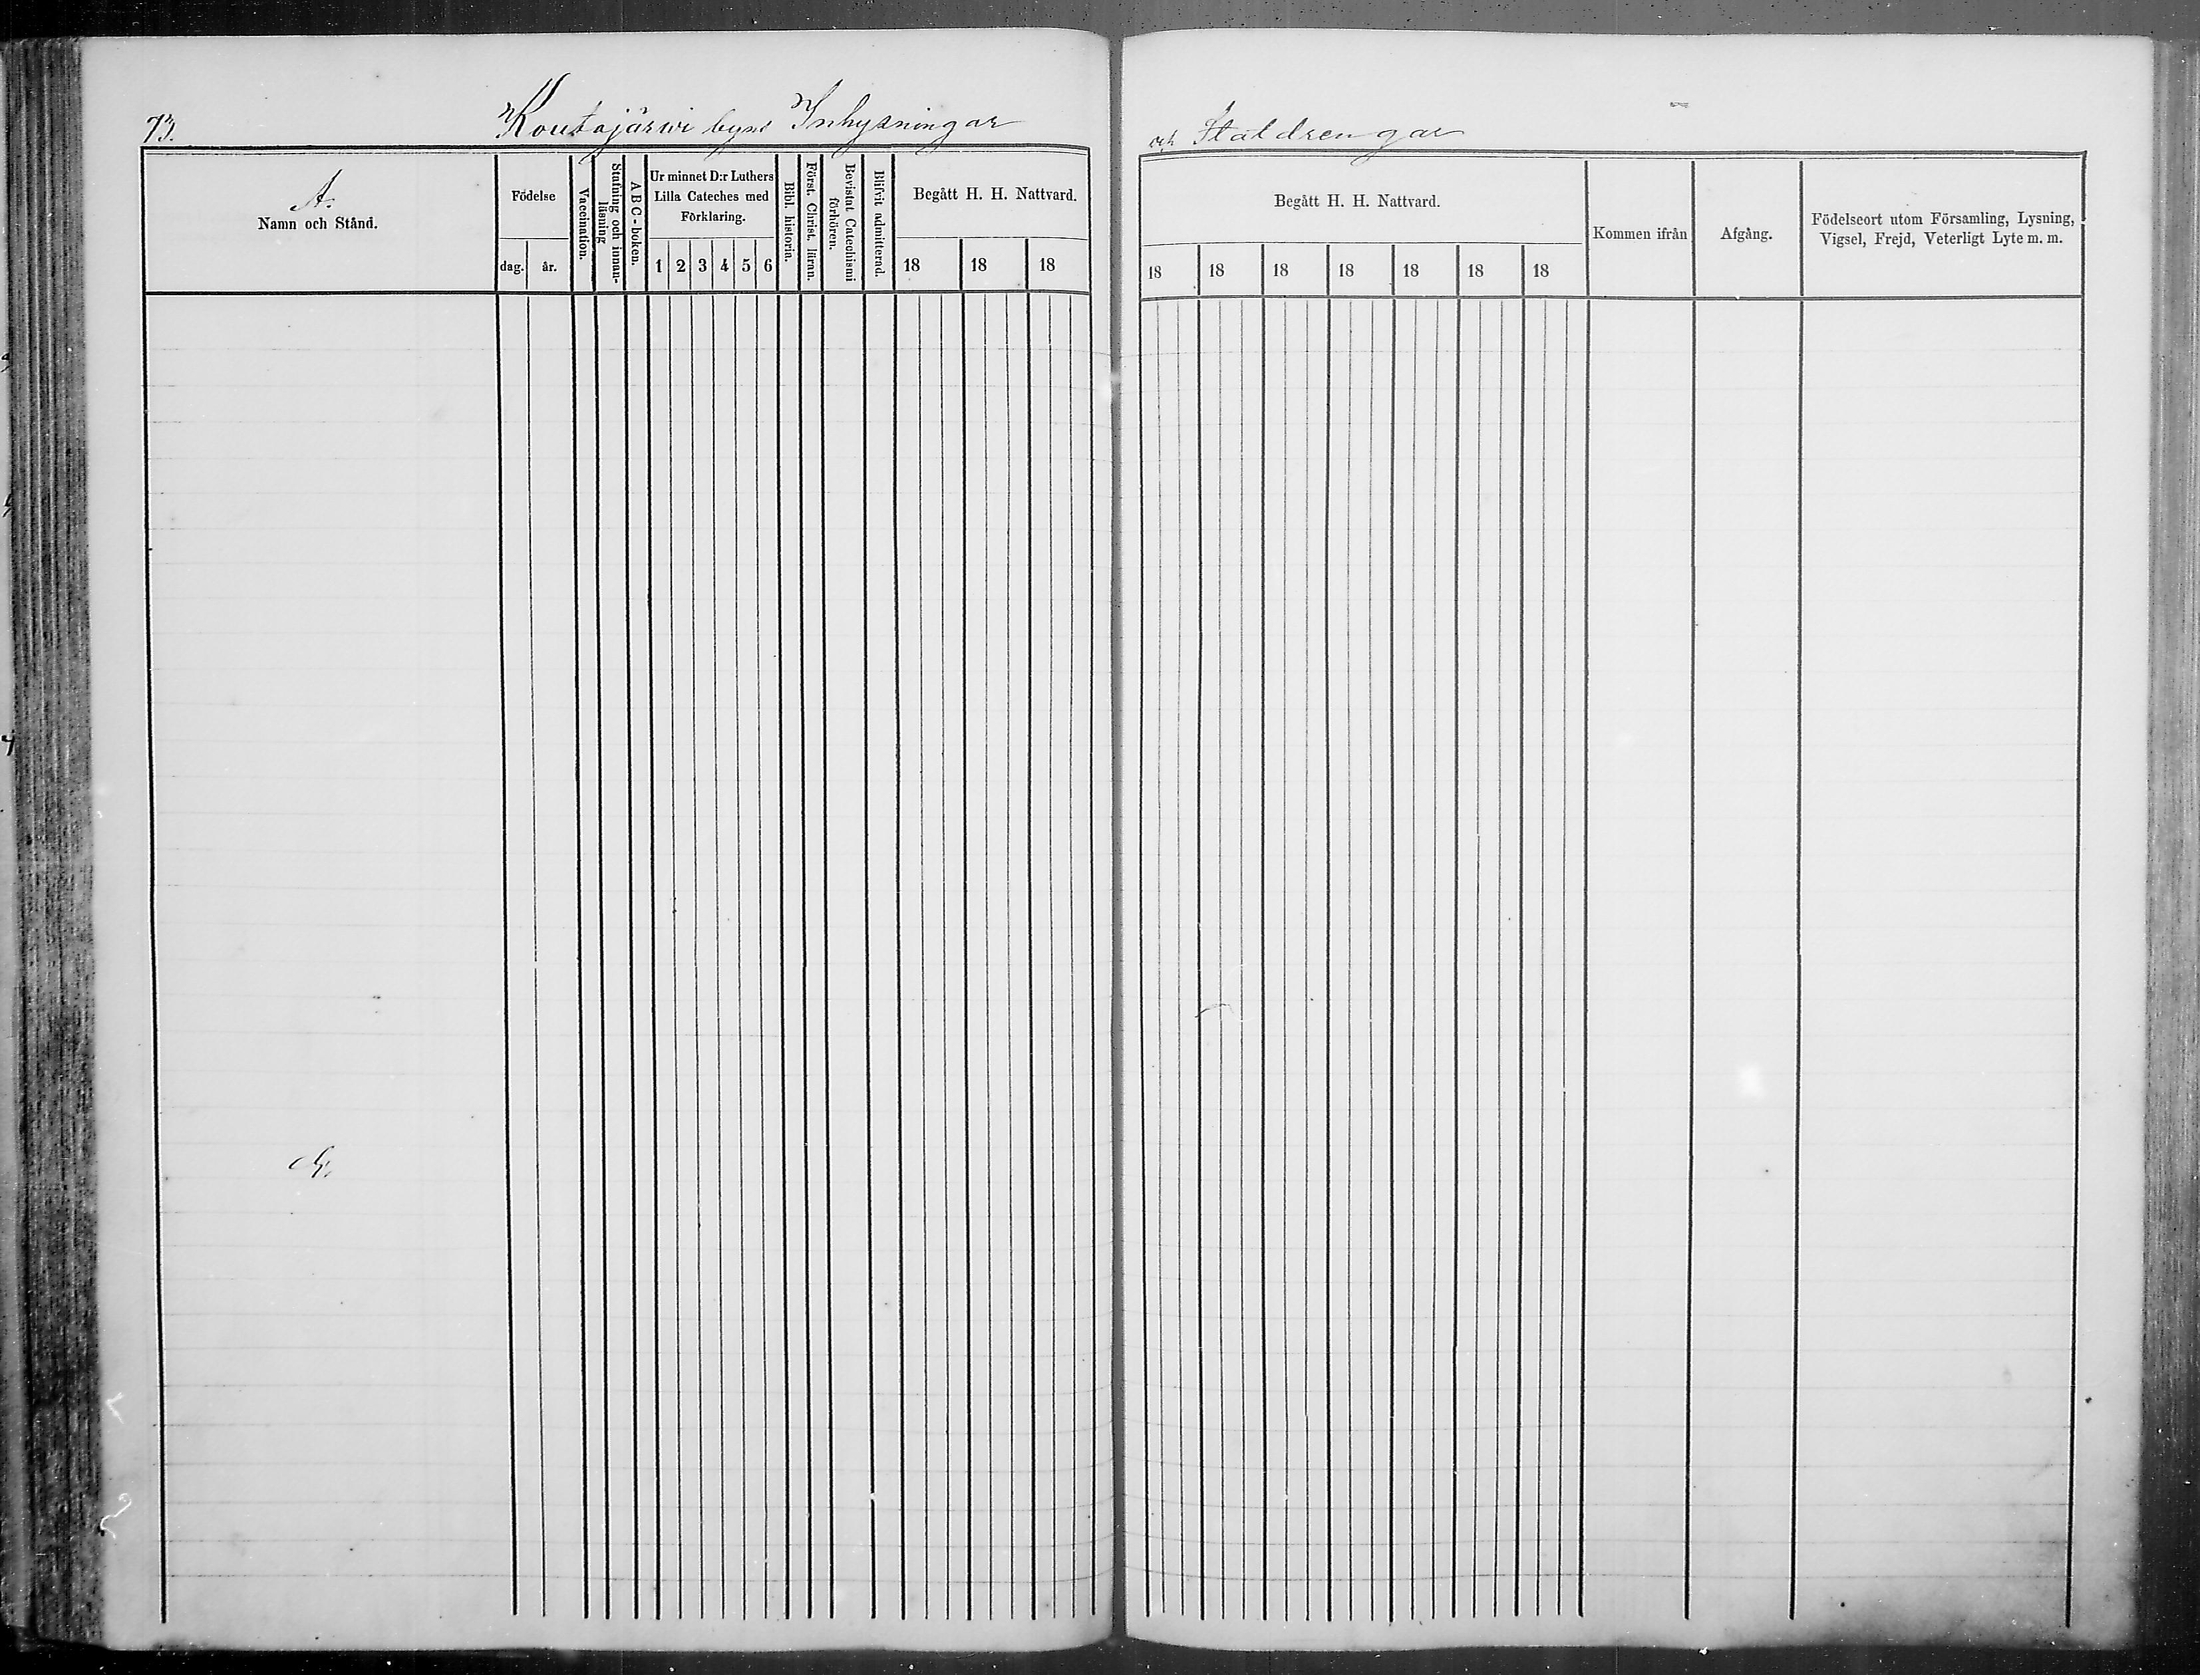 73.
Koutajärwi byns Inhysningar
och Staldrengar
A.
Namn och Stånd.
Födelse
dag.
år.
Vaccination.
Stafning och innan-
läsning
ABC-boken.
Ur minnet D:r Luthers
Lilla Cateches med
Förklaring.
1 2 3 4 5 6
Bibl. historia.
Först. Christ. läran.
Bevistat Catechismi
förhören.
Blifvit admitterad.
Begått H. H. Nattvard.
18 18 18
Begått H. H. Nattvard.
18 18 18 18 18 18 18
Kommen ifrån
Afgång.
Födelseort utom Församling, Lysning,
Vigsel, Frejd, Veterligt Lyte m. m.